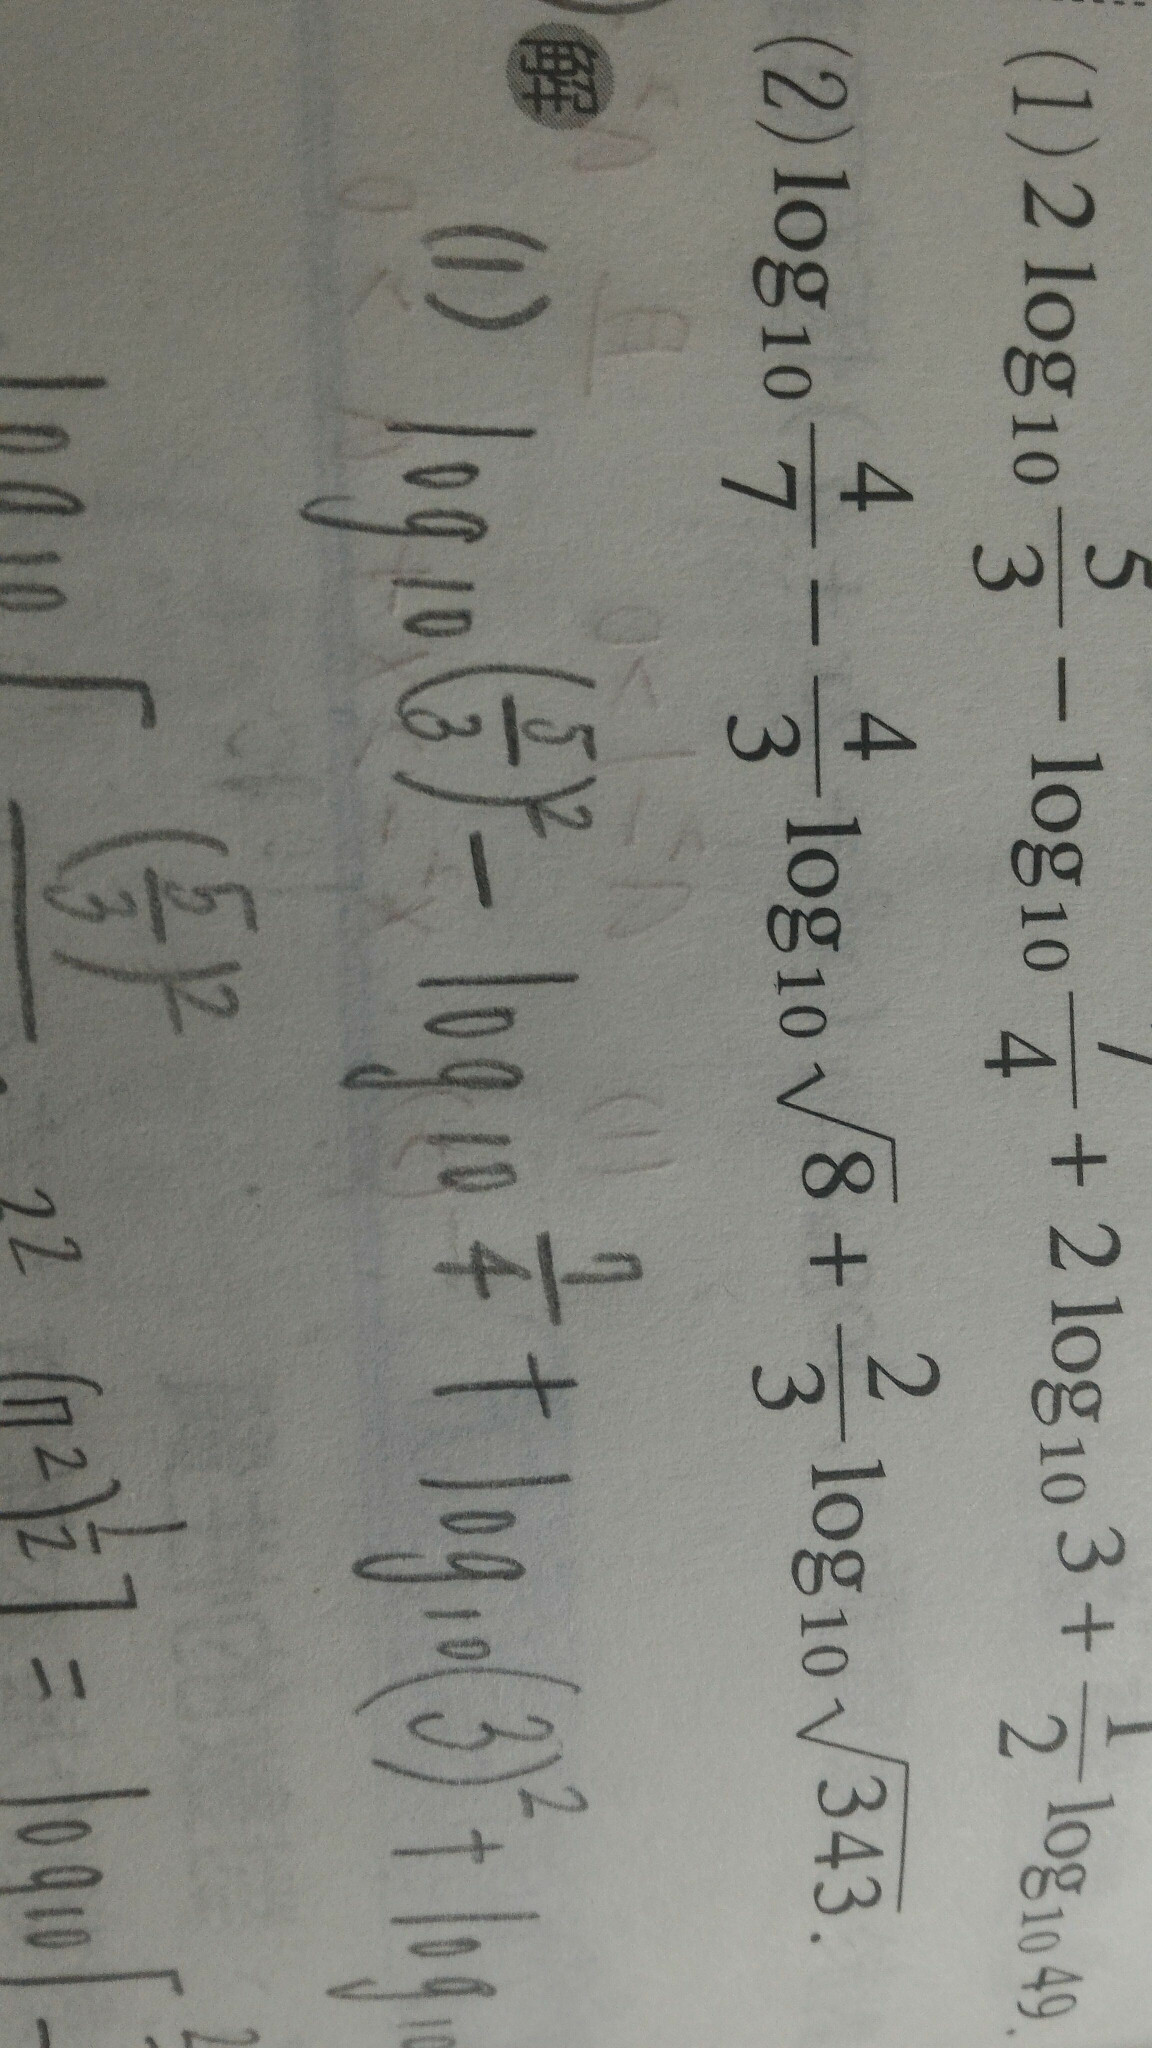 (1) 2 log₁₀ 5/3 − log₁₀ 7/4 + 2 log₁₀ 3 + 1/2 log₁₀ 49.
(2) log₁₀ 4/7 − 4/3 log₁₀ √8 + 2/3 log₁₀ √343.
解
(1) log₁₀(5/3)² − log₁₀ 7/4 + log₁₀(3)² + log₁₀
log₁₀[ (5/3)² · 3² (7²)^½ ] = log₁₀[